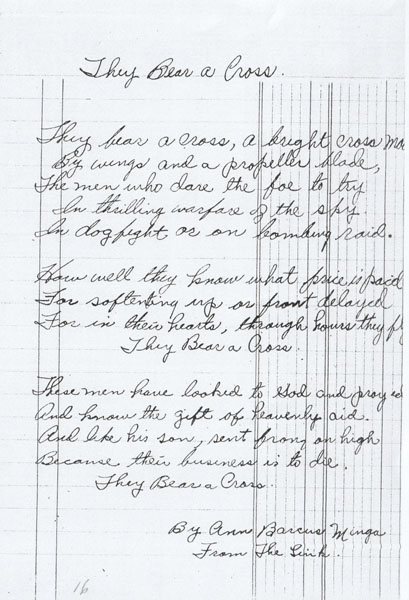 They Bear a Cross.
They bear a cross, a bright cross ma
By wings and a propeller blade,
The men who dare the foe to try
In thrilling warfare of the sky.
In dogfight or on bombing raid.
How well they know what price is paid
For softening up or front delayed
For in their hearts, through hours they fly
They Bear a Cross.
These men have looked to God and prayed
And know the gift of heavenly aid.
And like his son, sent from on high
Because their business is to die.
They Bear a Cross.
By Ann Barcus Minga
From The Link.
16